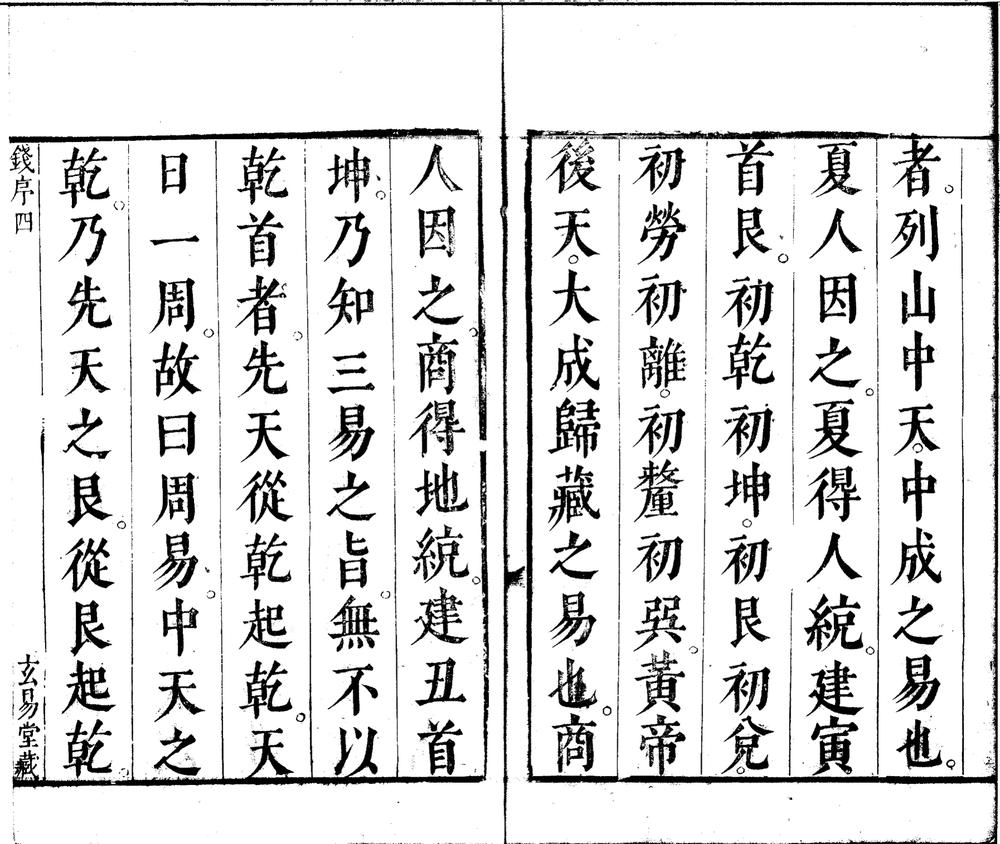 者列山中天中成之易也
夏人因之夏得人統建寅
首艮初乾初坤初艮初兌
初勞初離初釐初巽黃帝
後天大成歸藏之易也商
人因之商得地統建丑首
坤乃知三易之旨無不以
乾首者先天從乾起乾天
日一周故曰周易中天之
乾乃先天之艮從艮起乾
錢序四
玄易堂藏